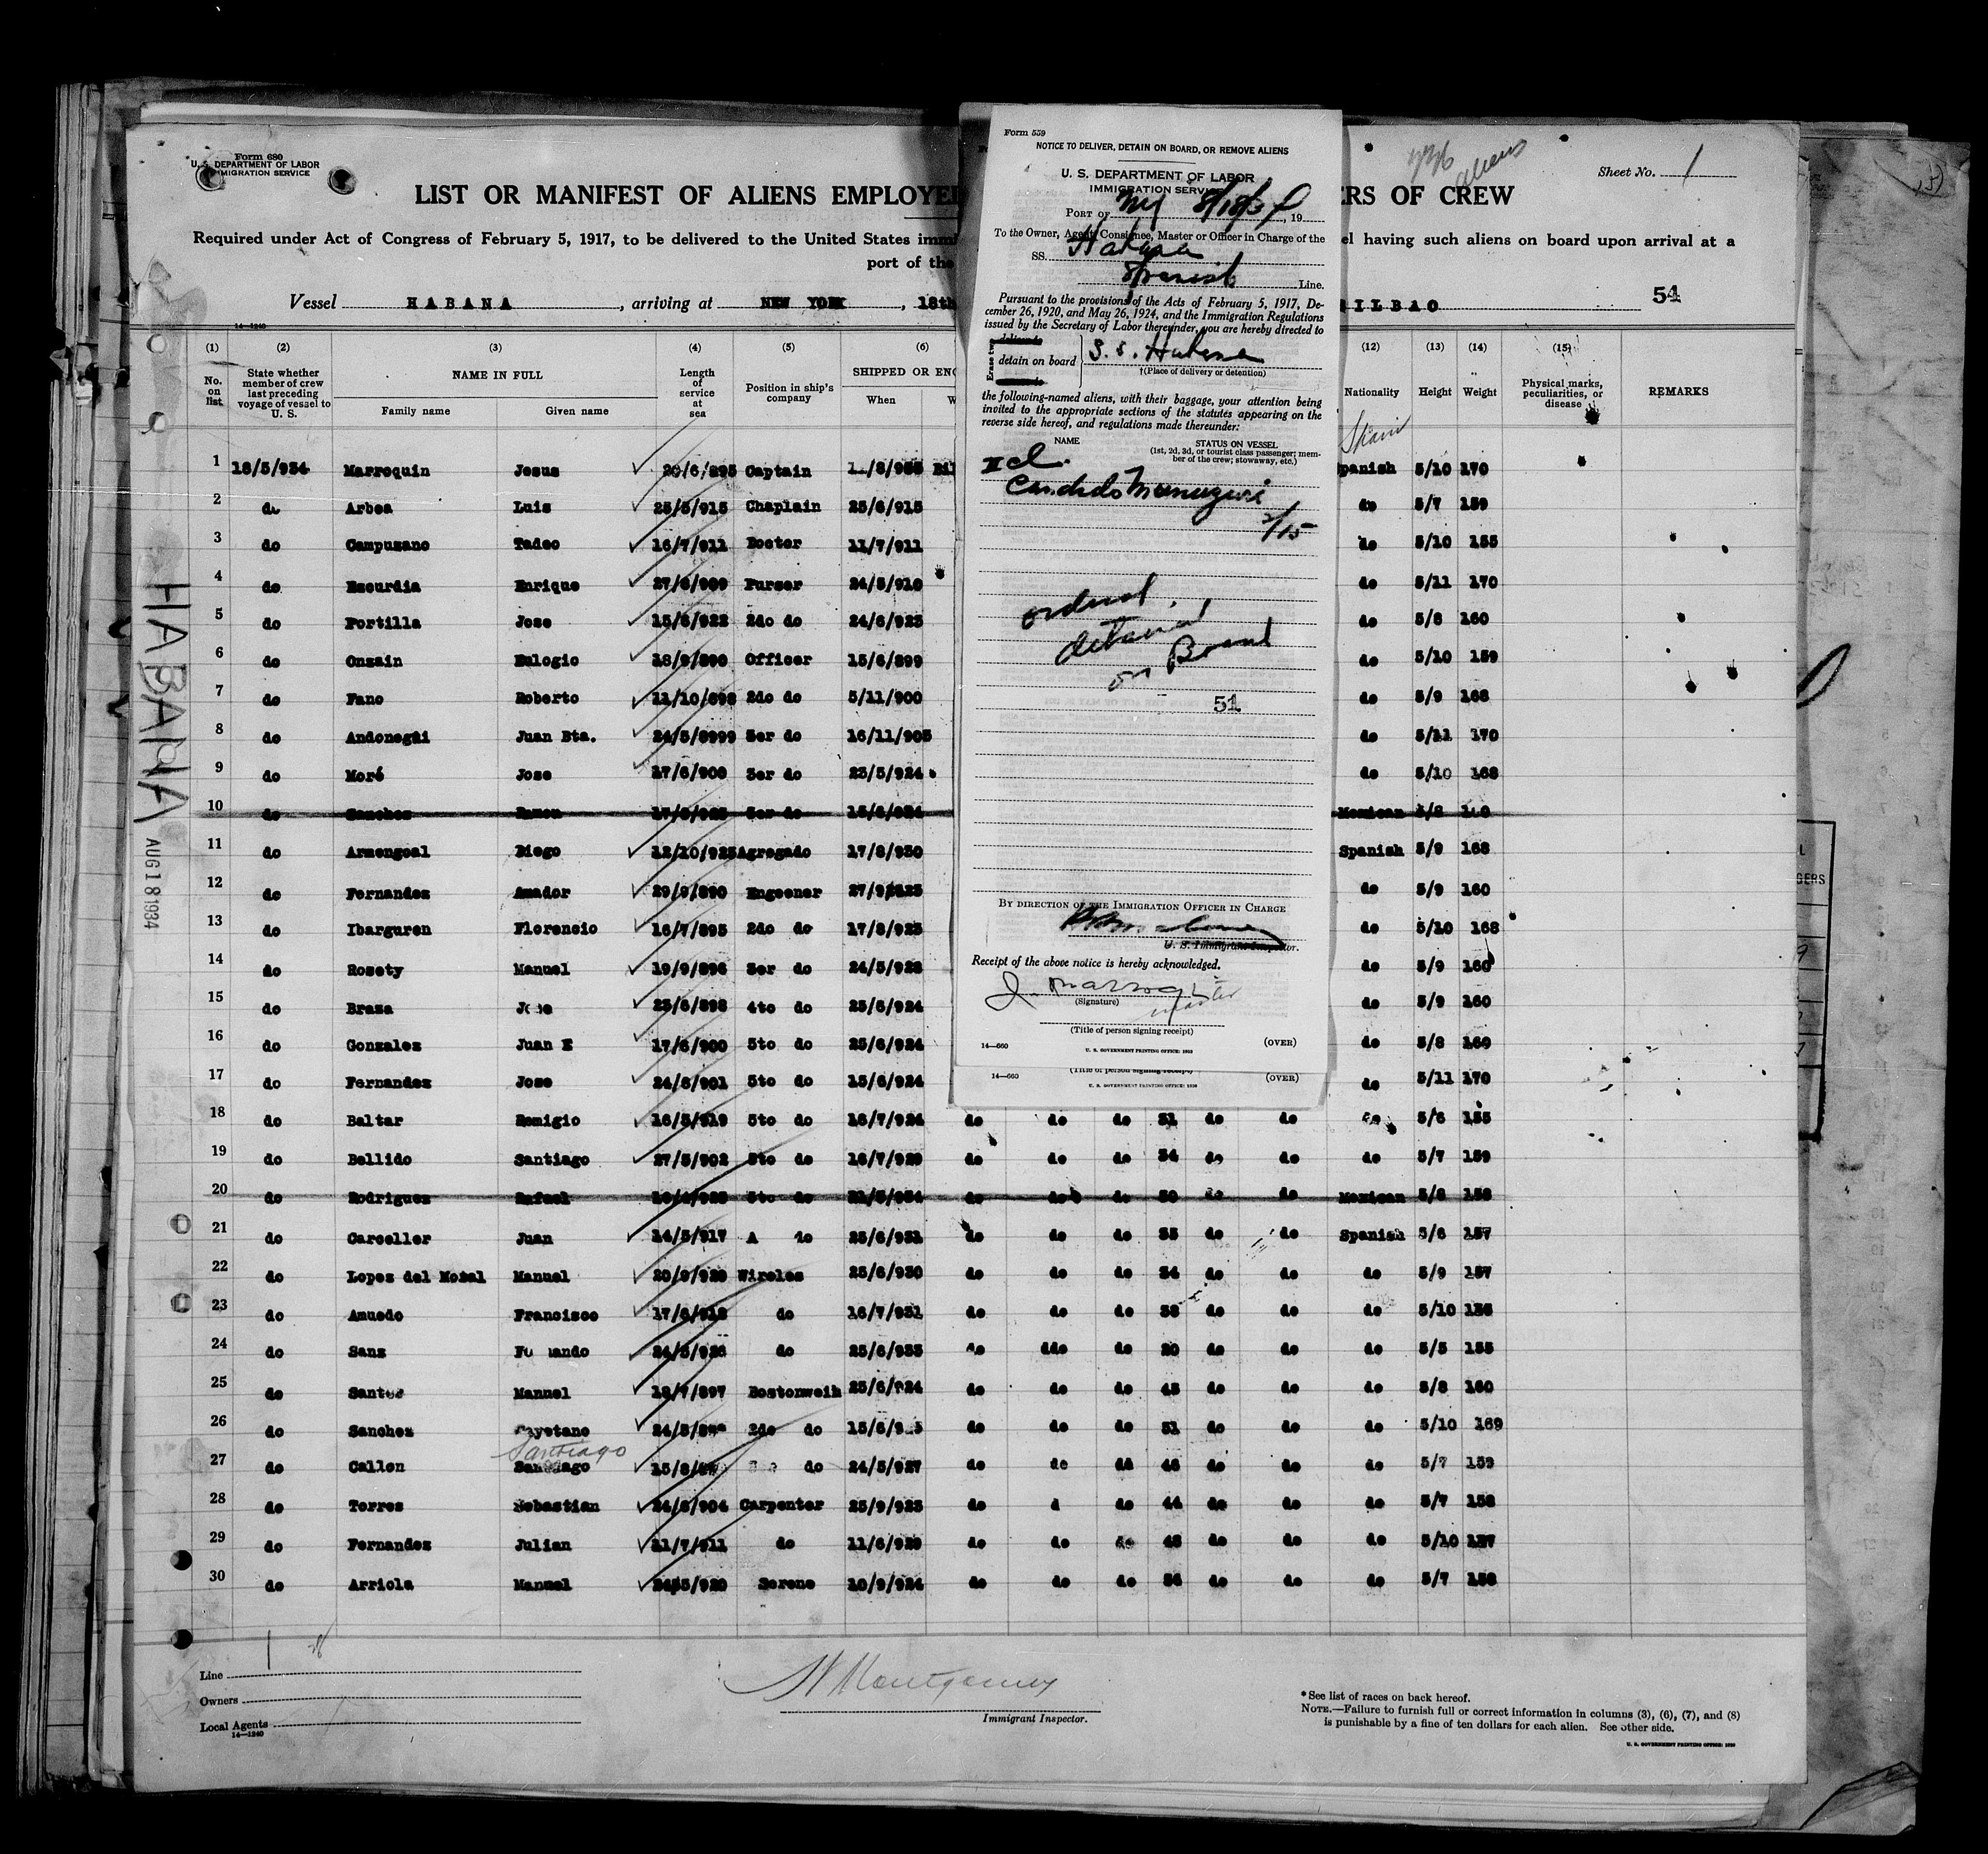 Form 680
U. S. DEPARTMENT OF LABOR
IMMIGRATION SERVICE
Sheet No. 1
aliens
LIST OR MANIFEST OF ALIENS EMPLOYE
RS OF CREW
Required under Act of Congress of February 5, 1917, to be delivered to the United States immi
el having such aliens on board upon arrival at a
port of the
Vessel HABANA, arriving at NEW YORK, 18th
ILBAO
54
14—1240
(1) (2) (3) (4) (5) (6)
(12) (13) (14) (15)
No. on list
State whether member of crew last preceding voyage of vessel to U. S.
NAME IN FULL
Family name Given name
Length of service at sea
Position in ship's company
SHIPPED OR ENG
When W
Nationality Height Weight
Physical marks, peculiarities, or disease
REMARKS
1 18/5/934 Marroquin Jesus 20/6/895 Captain Bil panish 5/10 170
2 do Arbea Luis 25/5/915 Chaplain 25/6/915 do 5/7 159
3 do Campuzano Tadeo 16/7/911 Docter 11/7/911 do 5/10 155
4 do Ezcurdia Enrique 27/6/909 Purser 24/5/910 do 5/11 170
5 do Portilla Jose 15/6/922 2do do 24/6/923 do 5/8 160
6 do Onzain Eulogio 18/9/890 Officer 15/6/899 do 5/10 159
7 do Fano Roberto 11/10/898 2do do 5/11/900 do 5/9 168
8 do Andonegui Juan Bta. 24/5/8999 3er do 16/11/905 do 5/11 170
9 do Moré Jose 17/6/900 3er do 23/5/924 do 5/10 168
10 do Sanchez Ramon 3er do 15/6/934 Mexican 5/8
11 do Armengoal Diego 12/10/925 Agregado 17/8/930 Spanish 5/9 168
12 do Fernandez Amador 29/9/890 Engeener do 5/9 160
13 do Ibarguren Florencio 16/7/895 2do do 17/8/923 do 5/10 168
14 do Rosety Manuel 19/9/896 3er do 24/5/928 do 5/9 160
15 do Braza Jose 23/6/898 4to do 25/6/924 do 5/9 160
16 do Gonzalez Juan E 17/6/900 5to do 25/6/924 do 5/8 169
17 do Fernandez Jose 24/8/901 5to do 15/6/924 do 5/11 170
18 do Baltar Remigio 16/5/919 5to do 16/7/924 do do do 31 do do do 5/6 155
19 do Bellido Santiago 27/5/902 5to do 16/7/929 do do do 34 do do do 5/7 159
20 do Rodriguez Rafael 5to do do do do 30 do do Mexican 5/8 158
21 do Carceller Juan 14/5/917 A do 25/6/931 do do do 35 do do Spanish 5/6 157
22 do Lopez del Moral Manuel 20/9/929 Wireles 25/6/930 do do do 34 do do do 5/9 157
23 do Amuedo Francisco 17/6/918 do 16/7/931 do do do 38 do do do 5/10
24 do Sanz 24/5/928 do 25/6/933 do ddo do 20 do do do 5/5 155
25 do Santos Manuel 18/7/897 Bostonweih 25/6/924 do do do 45 do do do 5/8 160
26 do Sanchez Cayetano 2do do do do do 51 do do do 5/10 169
Santiago
27 do Callen Santiago do 24/5/927 do do do 46 do do do 5/7 159
28 do Torres Sebastian 24/8/904 Carpenter 25/9/923 do d do 44 do do do 5/7 158
29 do Fernandez Julian 11/7/911 do 11/6/929 do do do 45 do do do 5/10 157
30 do Arriola Manuel Sereno 10/9/924 do do do 54 do do do 5/7 158
Spain
HABANA
AUG 18 1934
Form 559
NOTICE TO DELIVER, DETAIN ON BOARD, OR REMOVE ALIENS
U. S. DEPARTMENT OF LABOR
IMMIGRATION SERVICE
PORT OF NY 8/18/34, 19
To the Owner, Agent, Consignee, Master or Officer in Charge of the
SS. Habana
Spanish Line.
Pursuant to the provisions of the Acts of February 5, 1917, De-
cember 26, 1920, and May 26, 1924, and the Immigration Regulations
issued by the Secretary of Labor thereunder, you are hereby directed to
Erase two
detain on board
S. S. Habana
†(Place of delivery or detention)
the following-named aliens, with their baggage, your attention being
invited to the appropriate sections of the statutes appearing on the
reverse side hereof, and regulations made thereunder:
NAME
STATUS ON VESSEL
(1st, 2d, 3d, or tourist class passenger; mem-
ber of the crew; stowaway, etc.)
Candido
2/15
ordered
detained
on Board
54
BY DIRECTION OF THE IMMIGRATION OFFICER IN CHARGE
U. S. Immigrant Inspector.
Receipt of the above notice is hereby acknowledged.
(Signature)
master
(Title of person signing receipt)
14—660
U. S. GOVERNMENT PRINTING OFFICE: 1933
(OVER)
(Title of person signing receipt)
14—660
(OVER)
Line
Owners
Local Agents
14—1240
Montgomery
Immigrant Inspector.
* See list of races on back hereof.
NOTE.—Failure to furnish full or correct information in columns (3), (6), (7), and (8)
is punishable by a fine of ten dollars for each alien. See other side.